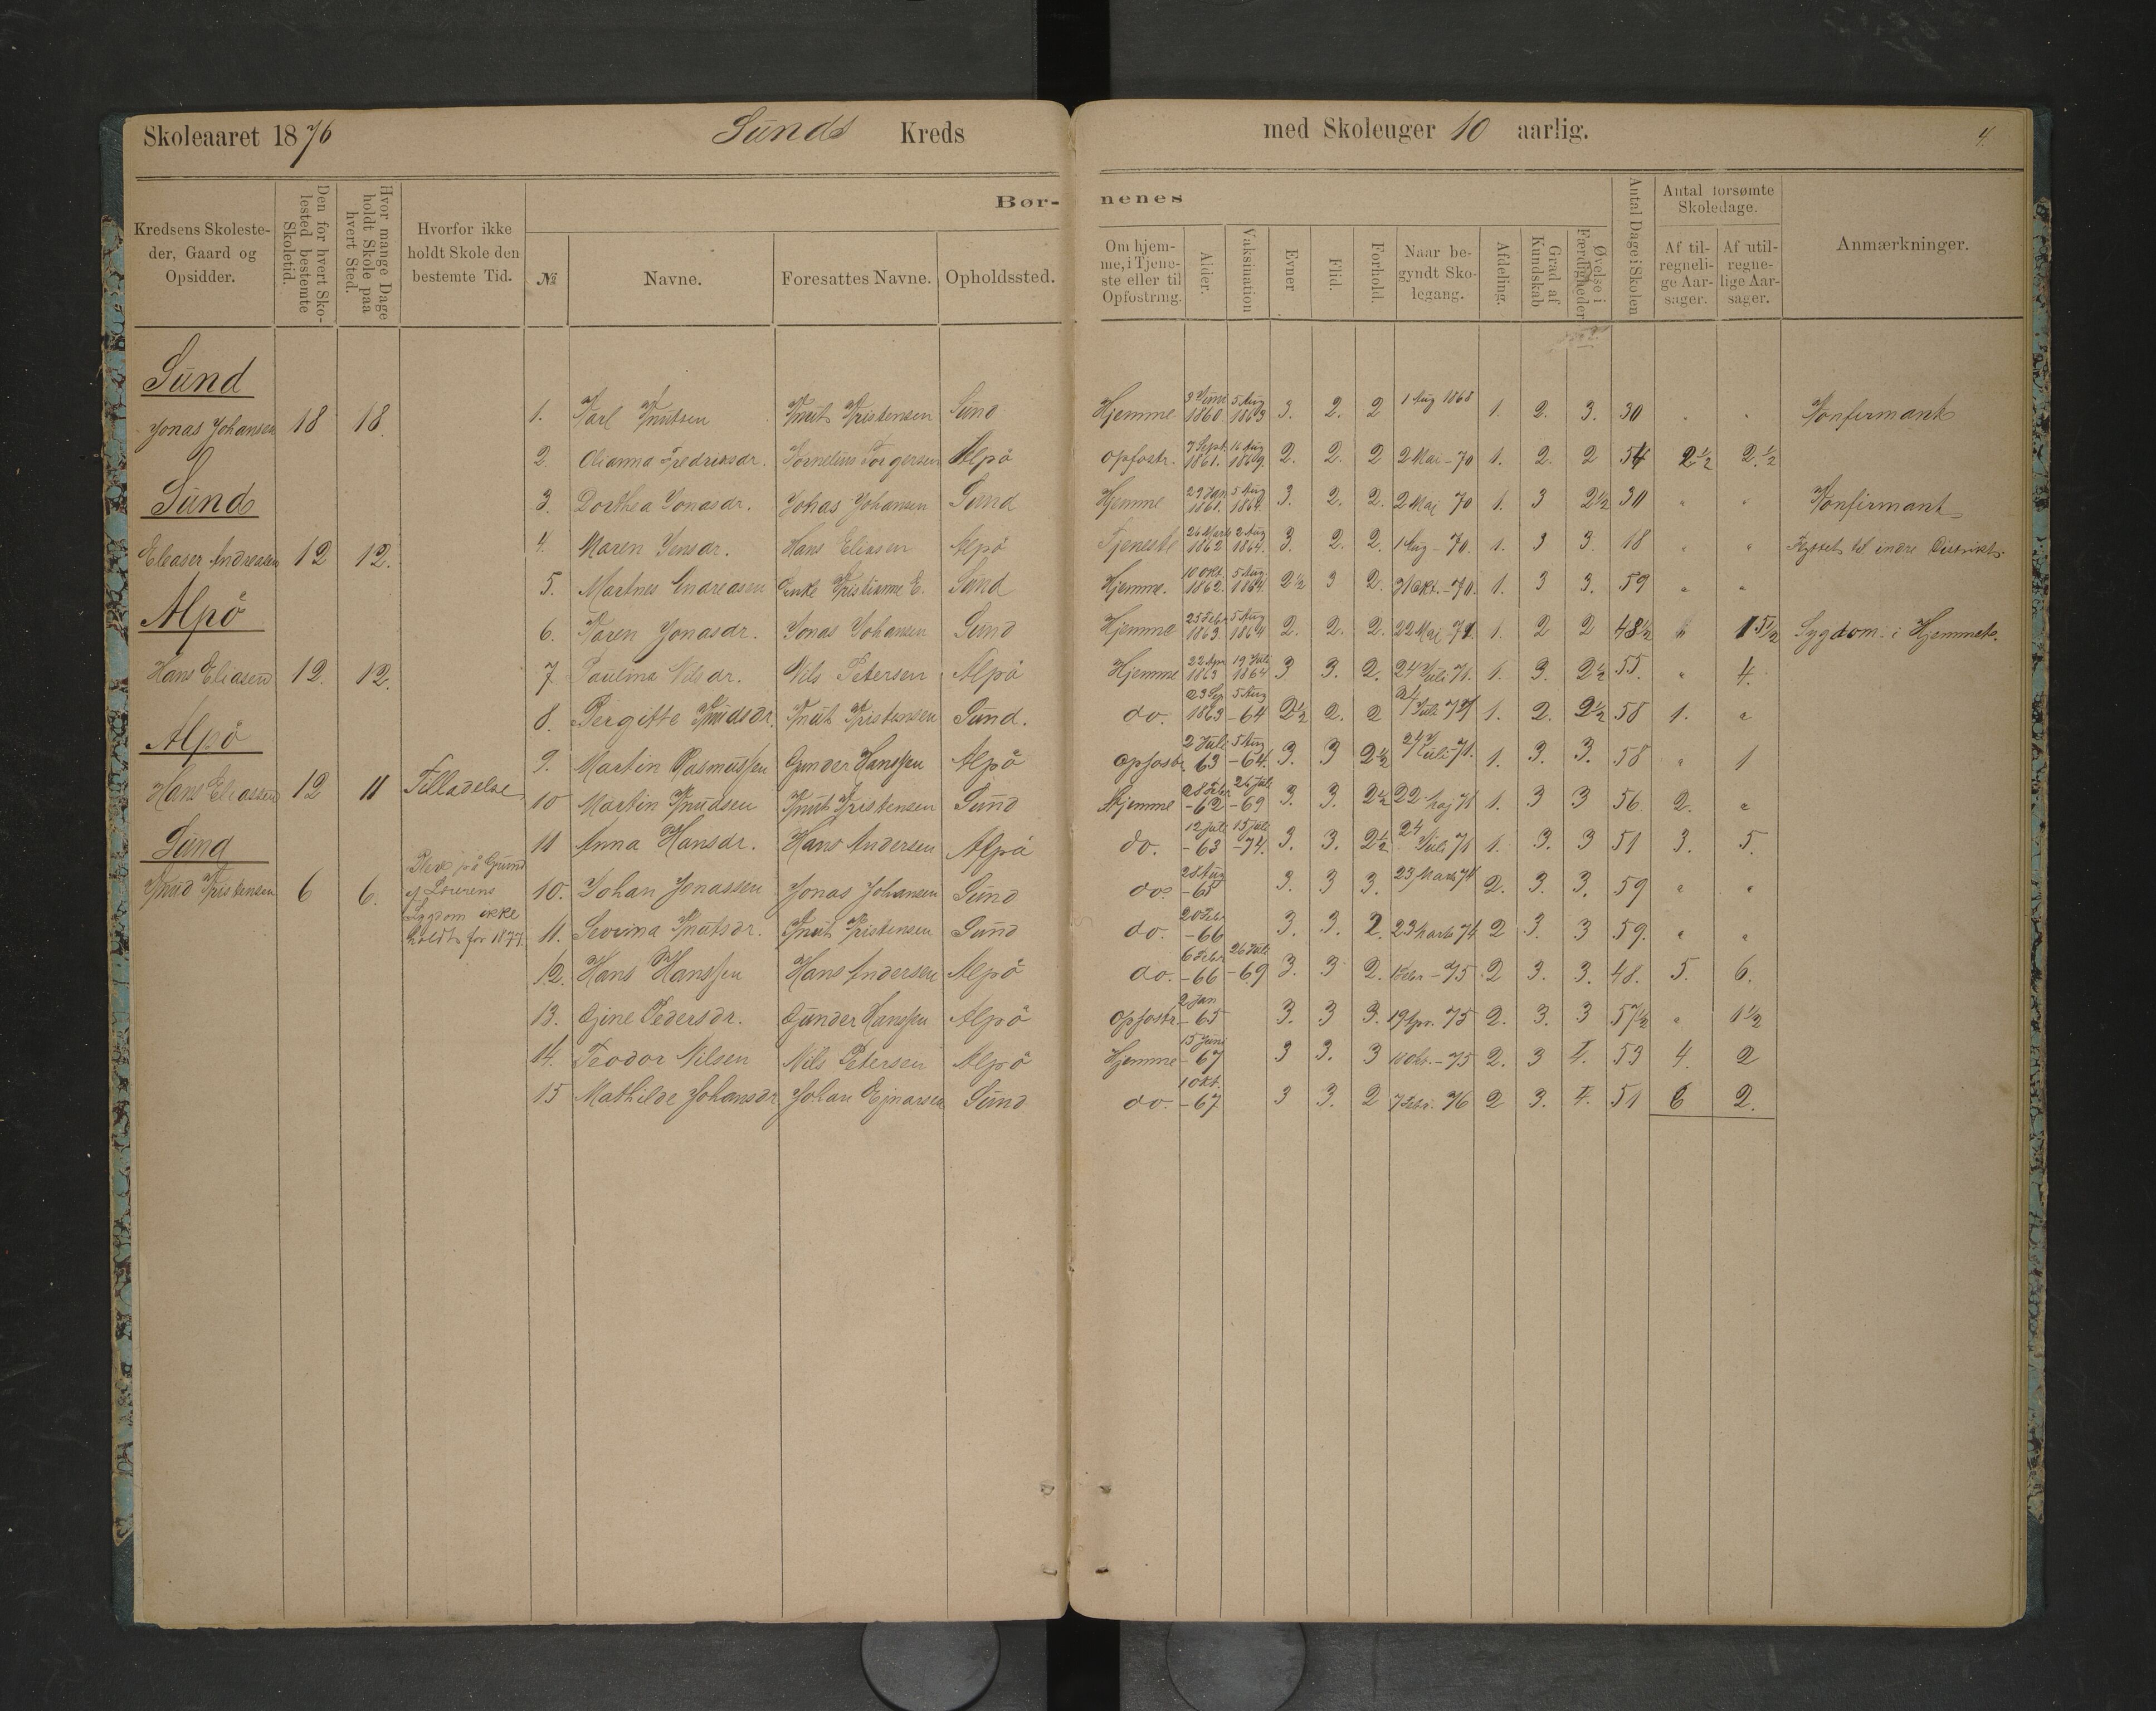 Skoleaaret 1876 Sunds Kreds med Skoleuger 10 aarlig. 4.
Kredsens Skolesteder, Gaard og Opsidder. Den for hvert Skolested bestemte Skoletid. Hvor mange Dage holdt Skole paa hvert Sted. Hvorfor ikke holdt Skole den bestemte Tid. Bør- nenes Antal Dage i Skolen Antal forsømte Skoledage. Anmærkninger.
№ Navne. Foresattes Navne. Opholdssted. Om hjemme, i Tjeneste eller til Opfostring. Alder. Vaksination Evner Flid. Forhold. Naar begyndt Skolegang. Afdeling. Grad af Kundskab Øvelse i Færdigheder Af tilregnelige Aarsager. Af utilregnelige Aarsager.
Sund
Jonas Johansen 18 18.
Sund
Eleaser Andreasen 12 12.
Alpö
Hans Eliasen 12. 12.
Alpö
Hans Eliassen 12 11 Tilladelse
Sund
Knud Kristensen 6 6.
på Grund
af
Sygdom ikke
holdt for 1877.
1. Karl Knutsen Knut Kristensen Sund Hjemme 3 Juni 1860. 5 Aug 1863 3. 2. 2 1 Aug 1868 1. 2. 3. 30 " " Konfirmant
2. Olianna Fredriksdr. Kornelius Torgersen Alpö opfostr. 7 Sept. 1861. 16 Aug 1869. 2. 2. 2 2 Mai - 70 1. 2. 2 54 2½ 2.½
3. Dorthea Jonasdr. Johas Johansen Sund Hjemme 29 Jan 1861. 5 Aug 1864. 3. 2. 2. 2 Mai 70 1. 3 2½ 30 " " Konfirmant
4. Maren Jensdr. Hans Eliasen Alpö Tjeneste 26 Marts 1862 2 Aug 1864. 3. 2. 2. 1 Aug - 70. 1. 3 3. 18 " " Flyttet til indre Distrikt.
5. Martnes Andreasen Enke Kristianne E. Sund Hjemme. 10 Okt. 1862. 5 Aug 1864. 2½ 3 2. 31 Okt. - 70. 1. 3 3. 59 " "
6. Karen Jonasdr. Jonas Johansen Sund Hjemme 25 Febr 1863 5 Aug 1864 2. 2. 2. 22 Mai 71. 1. 2 2 48½ " 15½ Sygdom i Hjemmet.
7 Paulina Nilsdr. Nils Petersen Alpö Hjemme 22 Apr 1863 19 Juli 1864 3 3. 2. 24 Juli 71. 1. 3. 2½ 55. " 4.
8. Bergitte Knudsdr. Knut Kristensen Sund. do. 23 Sep 1863 5 Aug - 64 2½ 2. 2 24 Juli 71 1. 2. 2½ 58 1. "
9. Martin Rasmussen Gunder Hanssen Alpö opfostr. 2 Juli 63 5 Aug - 64. 3. 3 2½ 24 Juli - 71. 1. 3. 3. 58 " 1
10 Martin Knudsen Knut Kristensen Sund Hjemme 28 Febr - 62 26 Juli - 69 3. 3. 2½ 22 Maj 71 1. 3 3 56 2. "
11 Anna Hansdr. Hans Andersen Alpö do. 12 juli - 63 15 juli - 74. 3. 3. 2½ 24 Juli 71 1. 3. 3 51 3. 5.
10. Johan Jonassen Jonas Johansen Sund do. 28 Aug - 65 3. 3 3. 23 Marts 74 2. 3. 3. 59 " "
11. Severina Knutsdr. Knut Kristensen Sund do. 20 Febr - 66 3. 3. 2. 23 Marts 74 2 3. 3 59. " "
12. Hans Hanssen Hans Andersen Alpö do. 6 Febr - 66 26 Juli - 69 3. 3 2. 1 Febr - 75 2 3. 3. 48. 5. 6.
13. Gine Pedersdr. Gunder Hanssen Alpö opfostr. 2 Jan - 65 3. 3 3. 19 Apr. 75 2. 3. 3 57½ " 1½
14. Teodor Nilsen Nils Petersen Alpö Hjemme 15 Juni - 67 3 3. 3 10 Okt. - 75 2. 3 4. 53 4. 2
15 Mathilde Johansdr Johan Ejnarsen Sund do. 1 Okt. - 67 3 3. 2 7 Febr. 76 2 3. 4. 51 6 2.